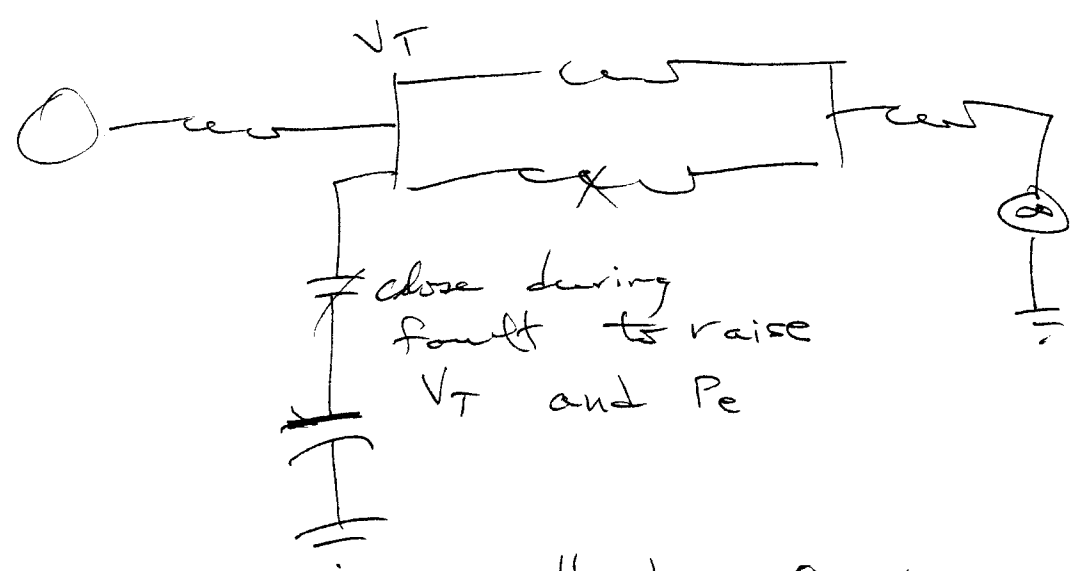 VT
∞
close during
fault to raise
VT and Pe